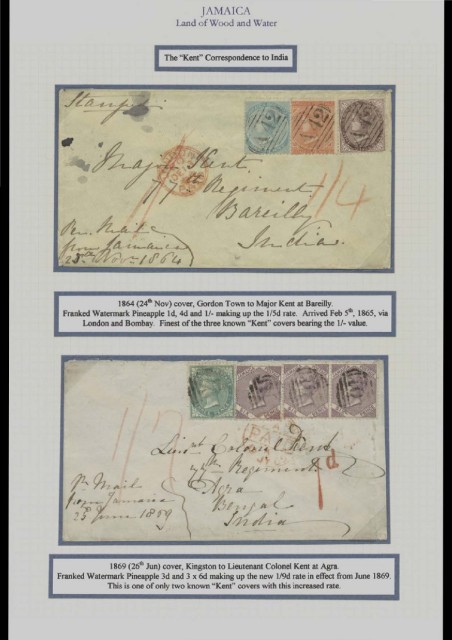 JAMAICA
Land of Wood and Water
The "Kent" Correspondence to India
Stamped
Major Kent
77th Regiment
Bareilly
India
1/4
Per Mail
from Jamaica
23rd Nov. 1864
1864 (24th Nov) cover, Gordon Town to Major Kent at Bareilly.
Franked Watermark Pineapple 1d, 4d and 1/- making up the 1/5d rate. Arrived Feb 5th, 1865, via
London and Bombay. Finest of the three known "Kent" covers bearing the 1/- value.
1/7
Lieut Colonel Kent
77th Regiment
Agra
Bengal
India
1d
Pr Mail
from Jamaica
25 June 1869
1869 (26th Jun) cover, Kingston to Lieutenant Colonel Kent at Agra.
Franked Watermark Pineapple 3d and 3 x 6d making up the new 1/9d rate in effect from June 1869.
This is one of only two known "Kent" covers with this increased rate.